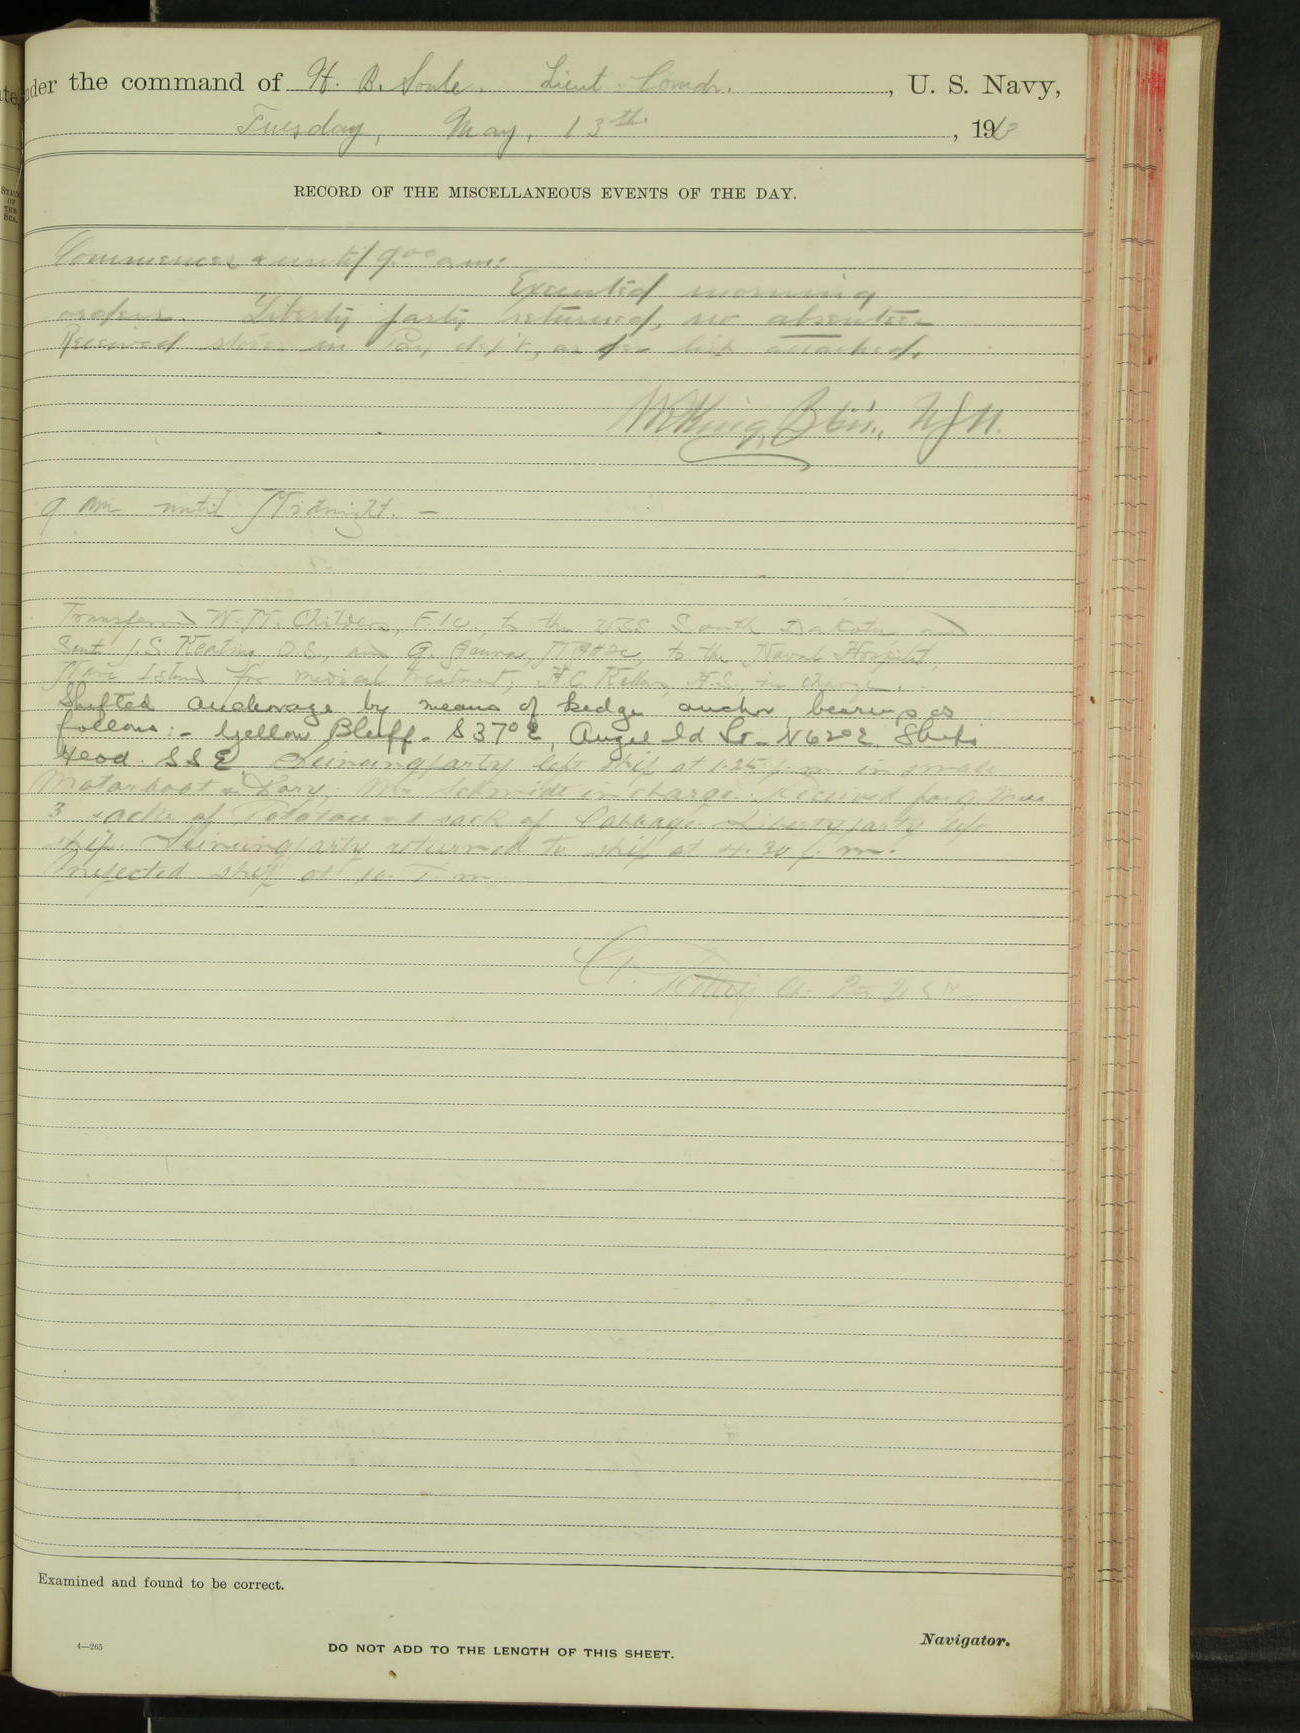 under the command of H. B. Soule. Lieut. Comdr. , U. S. Navy,
Tuesday, May, 13th. , 1913
RECORD OF THE MISCELLANEOUS EVENTS OF THE DAY.
Commences & until 9.00 a.m:
Executed morning
orders. Liberty party returned, no absentees
Received stores in Pay dep't, as per list attached.
Btsn., USN.
9 am until Midnight. —
Transferred W. M. Childers, F.1c., to the USS South Dakota, and
Sent J.S. Keating O.S., and G. to the Naval Hospital,
Mare Island for medical treatment, H.C. Keller, H.S., in charge.
Shifted anchorage by means of kedge anchor, bearings as
follows:- Yellow Bluff - S 37° E, Angel Id Lt - N62°E. Ships
Head. SSE Seining party left ship at 1.25 p.m. in small
Motorboat & Dory. Mr Schmidt in charge. Received for G Mess
3 sacks of Potatoes - 1 sack of Cabbage. Liberty party left
ship. Seining party returned to ship at 4.30 p. m.
Inspected ship at 10. P. m.
Examined and found to be correct.
Navigator.
4—265
DO NOT ADD TO THE LENGTH OF THIS SHEET.